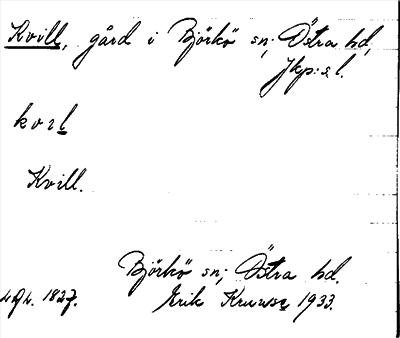 Kvill, gård i Björkö sn, Östra hd,
Jkp:s l.
kvıl
Kvill.
Björkö sn, Östra hd.
1827. Erik Kruuse 1933.